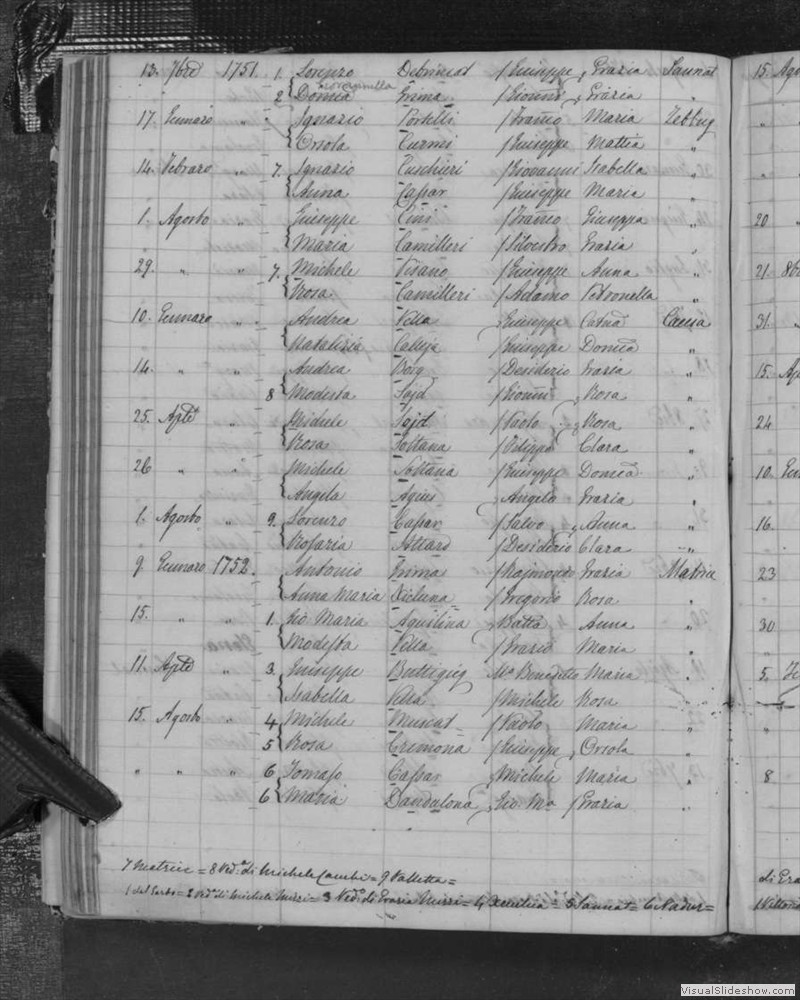 13. 7bre 1751. 1. Lorenzo Debrincat / Giuseppe, Grazia Sannat 15. Ago
Giovannella
2 Domca Gnima / Gionni, Grazia "
17. Ennaro " Ignazio Portelli / Franco Maria Zebbug
Orsola Curmi / Giuseppe Mattia "
14. Febraro " 7. Ignazio Cuschieri / Giovanni Isabella "
Anna Cassar / Giuseppe Maria "
1. Agosto " Giuseppe Cini / Franco Giuseppa " 20
Maria Camilleri / Silvestro Grazia "
29. " " 7. Michele Pisano / Giuseppe Anna " 21. 8b
Rosa Camilleri / Adamo Petronella "
10. Ennaro " Andrea Vella Giuseppe Catna Caccia 31
Natalizia Calleja / Giuseppe Domca "
14. " " Andrea Borg / Desiderio Grazia " 15. Ap
8 Modesta Sajd / Gionni Rosa "
25. Aple " Michele Sajd / Paolo Rosa " 24
Rosa Soltana / Filippo Clara "
26 " " Michele Soltana / Giuseppe Domca " 10. Enn
Angela Agius Angelo Grazia "
1. Agosto " 9. Lorenzo Cassar / Salvo Anna " 16.
Rosaria Attard / Desiderio Clara "
9. Ennaro 1752. Antonio Gnima / Raimondo Grazia Matrice 23
Anna Maria Xicluna / Gregorio Rosa "
15. " " 1. Gio Maria Aquilina Batta Anna " 30
Modesta Vella / Grazio Maria "
11. Aple " 3. Giuseppe Buttigieg Mo Benedetto Maria " 5.
Isabella Vella / Michele Rosa "
15. Agosto " 4 Michele Muscat / Paolo Maria "
5 Rosa Cremona / Giuseppe, Orsola "
" " " 6 Tomaso Cassar Michele Maria " 8
6 Maria Dandalona Gio. Ma / Grazia "
7 Matrice = 8 Veda di Michele = 9 Valletta =
1 del Garbo = 2 Veda di Michele Mizzi = 3 Veda di Grazia Mizzi = 4 Xeuchia = 5 Sannat = 6 Nadur =
VisualSlideshow.com